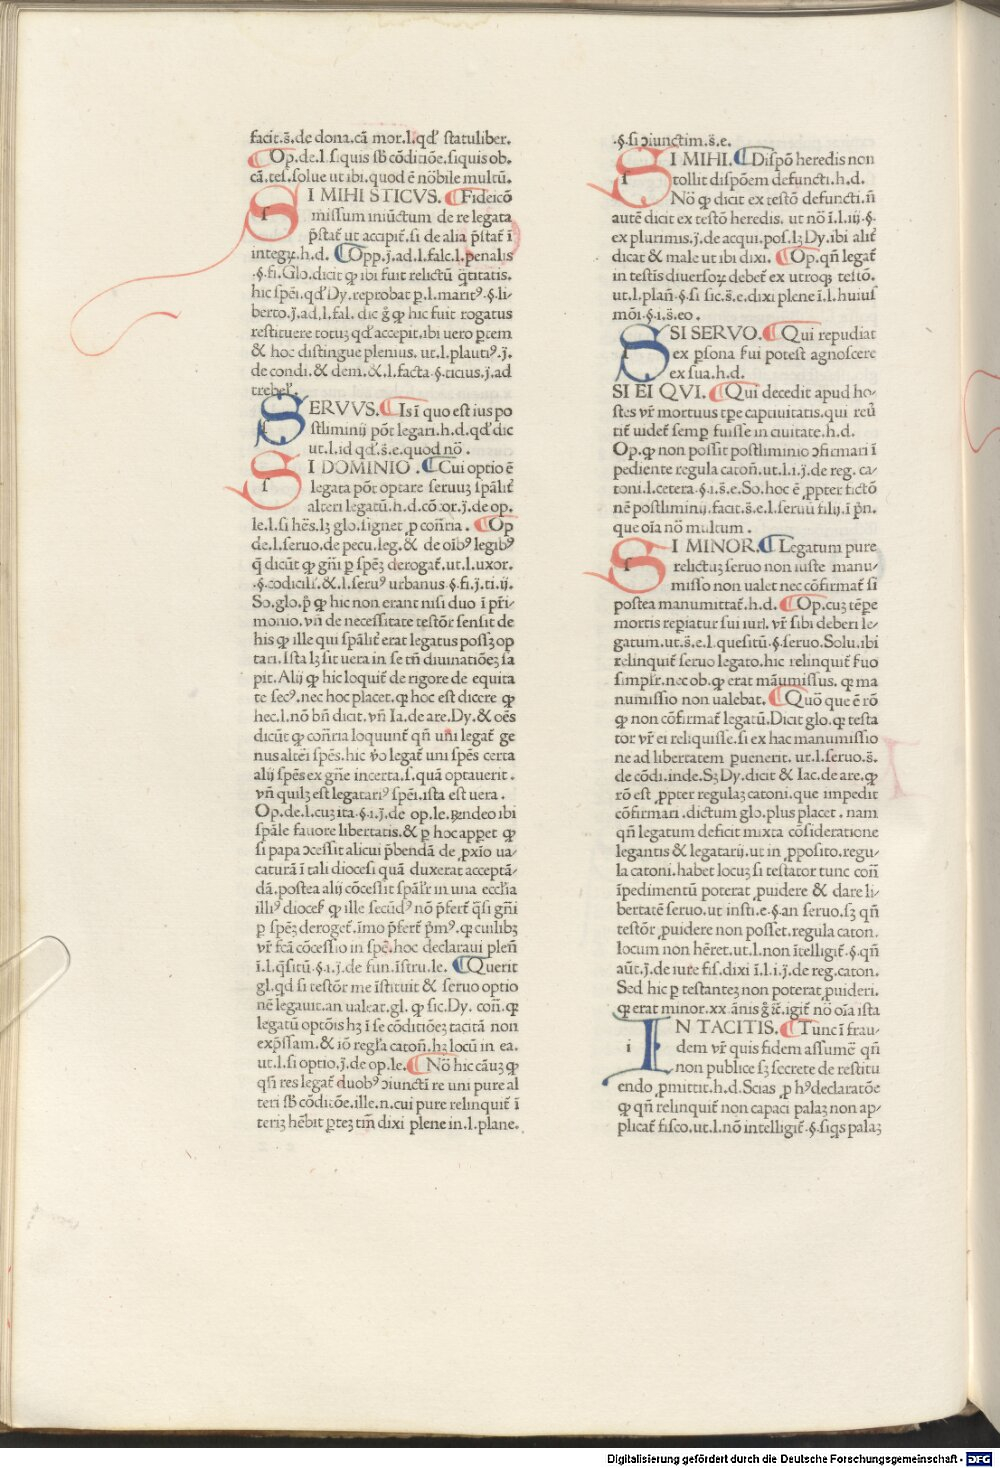 facit.s̃.de dona.cã mor.l.qd' statuliber.
Op.de.l.si quis sb cõditiõe.si quis ob.
cã.tes.solue ut ibi.quod ẽ nõbile multũ.
SI MIHI STICVS. Fideicõ
missum iniũctum de re legata
p̃stat̃ ut accipit̃.si de alia p̃stat̃ ĩ
integꝝ.h.d. Opp.j̃.ad.l.falc.l.penalis
.§.fi.Glo.dicit ꝙ ibi fuit relictũ q̃titatis.
hic sp̃ei.qd' Dy.reprobat p.l.marit⁹.§.li-
berto.j̃.ad.l.fal. dic g̃ ꝙ hic fuit rogatus
restituere totuꝫ qd' accepit.ibi uero p̱tem
& hoc distingue plenius. ut.l.plauti⁹.j̃.
de condi.& dem.&.l.facta.§.ticius.j̃.ad
trebel'.
SERVVS. Is ĩ quo est ius po
stliminij põt legari.h.d.qd' dic
ut.l.id qd'.s̃.e.quod nõ.
SI DOMINIO. Cui optio ẽ
legata põt optare seruuꝫ sp̃alit̃
alteri legatũ.h.d.cõ:or.j̃.de op.
le.l.si hẽs.lꝫ glo.signet ꝓ con̄ria. Op
de.l.seruo.de pecu.leg.& de oĩb⁹ legib⁹
q̃ dicũt ꝙ gñi p sp̃eꝫ derogat̃.ut.l.uxor.
.§.codicil'.&.l.seru⁹ urbanus.§.fi.j̃.ti.ij.
So.glo.p̃ ꝙ hic non erant nisi duo ĩ p̃ri-
monio.vñ de necessitate testõr sensit de
his ꝙ ille qui sp̃alit̃ erat legatus possꝫ op
tari.Ista lꝫ sit uera in se tñ diuinatiõeꝫ sa
pit.Alij ꝙ hic loquit̃ de rigore de equita
te sec⁹.nec hoc placet.ꝙ hoc est dicere ꝙ
hec.l.nõ bñ dicit.vñ Ia.de are.Dy.& oẽs
dicũt ꝙ cõn̄ria loquunt̃ qñ uni legat̃ ge
nus alteri sp̃es.hic v̊o legat̃ uni sp̃es certa
alij sp̃es ex gñe incerta.s.quã optauerit.
vñ quilꝫ est legatari⁹ sp̃ei.ista est uera.
Op.de.l.cuꝫ ita.§.i.j̃.de op.le.ꝶndeo ibi
sp̃ale fauore libertatis.& p hoc appet ꝙ
si papa ↄcessit alicui p̃bendã de ꝓxĩo ua-
caturã ĩ tali diocesi quã duxerat acceptã-
dã.postea alij cõcessit sp̃al'r in una eccl'ia
illi⁹ dioces' ꝙ ille secũd⁹ nõ p̃fert̃ q̃si gñi
p sp̃eꝫ deroget̃.ĩmo p̃fert̃ p̃m⁹.ꝙ cuilibꝫ
vr̃ fcã cõcessio in sp̃e.hoc declaraui pleñ
ĩ.l.q̃sitũ.§.i.j̃.de fun.ĩstru.le. Querit
gl.qd si testõr me ĩstituit & seruo optio
nẽ legauit.an ualeat.gl. ꝙ sic.Dy. coñ.ꝙ
legatũ optõis hꝫ ĩ se cõditiõeꝫ tacitã non
exp̃ssam.& iõ reg'la catoñ.hꝫ locũ in ea.
ut.l.si optio.j̃.de op.le. Nõ hic cãuꝫ ꝙ
qñ res legat̃ duob⁹ ↄiunctĩ re uni pure al
teri sb cõditõe.ille.n.cui pure relinquit̃ ĩ
teriꝫ hẽbit p̱teꝫ tm̃ dixi plene in.l.plane.
.§.si ↄiunctim.s̃.e.
SI MIHI. Dispõ heredis non
tollit dispõem defuncti.h.d.
Nõ ꝙ dicit ex testõ defuncti.ñ
autẽ dicit ex testõ heredis. ut nõ ĩ.l.iij.§.
ex plurimis.j̃.de acqui.pos.lꝫ Dy.ibi alit̃
dicat & male ut ibi dixi. Op.qñ legat̃
in testĩs diuersoꝝ debet̃ ex utroqꝫ testõ.
ut.l.plañ.§.si sic.s̃.e.dixi plene ĩ.l.huius
mõi.§.i.s̃.eo.
SSI SERVO. Qui repudiat
ex psona sui potest agnoscere
ex sua.h.d.
SI EI QVI. Qui decedit apud ho-
stes vr̃ mortuus tp̃e captiuitatis.qui reũ
tit̃ uidet̃ semp fuisse in ciuitate.h.d.
Op.ꝙ non possit postliminio ↄficmari ĩ
pediente regula catoñ.ut.l.i.j̃.de reg. ca-
toni.l.cetera.§.i.s̃.e.So.hoc ẽ ꝓpter fictõ
nẽ postliminij.facit.s̃.e.l.seruũ filij.ĩ p̃n.
que oĩa nõ multum.
SI MINOR. Legatum pure
relictuꝫ seruo non iuste manu-
misso non ualet nec cõfirmat̃ si
postea manumittat̃.h.d. Op.cuꝫ tẽpe
mortis repiatur sui iurl. vr̃ sibi deberi le-
gatum.ut.s̃.e.l.quesitũ.§.seruo.Solu.ibi
relinquit̃ seruo legato.hic relinquit̃ suo
simpl'r.nec ob.ꝙ erat mãumissus. ꝙ ma
numissio non ualebat. Quõ que ẽ rõ
ꝙ non cõfirmat̃ legatũ.Dicit glo.ꝙ testa
tor vr̃ ei reliquisse.si ex hac manumissio
ne ad libertatem puenerit. ut.l.seruo.s̃.
de cõdi.inde.Sꝫ Dy.dicit & Iac.de are.ꝙ
rõ est ꝓpter regulaꝫ catoni.que impedit
cõfirmari.dictum glo.plus placet. nam
qñ legatum deficit mixta cõsideratione
legantis & legatarij.ut in ꝓposito.regu-
la catoni.habet locuꝫ si testator tunc coñ
ĩpedimentũ poterat ꝓuidere & dare li-
bertatẽ seruo.ut insti.e.§.an seruo.sꝫ qñ
testõr ꝓuidere non posset.regula caton.
locum non hẽret.ut.l.non ĩtelligit̃.§.qñ
aũt.j̃.de iure fis.dixi ĩ.l.i.j̃.de reg.caton.
Sed hic p testanteꝫ non poterat ꝓuideri.
ꝙ erat minor.xx.ãnis g̃ ĩc̃.igit̃ nõ oĩa ista
IN TACITIS. Tunc ĩ frau-
dem vr̃ quis fidem assumẽ qñ
non publice sꝫ secrete de restitu
endo ꝓmittit.h.d.Scias ꝓ h⁹ declaratõe
ꝙ qñ relinquit̃ non capaci palaꝫ non ap-
plicat̃ fisco.ut.l.nõ intelligit̃.§.siqs palaꝫ
Digitalisierung gefördert durch die Deutsche Forschungsgemeinschaft - DFG